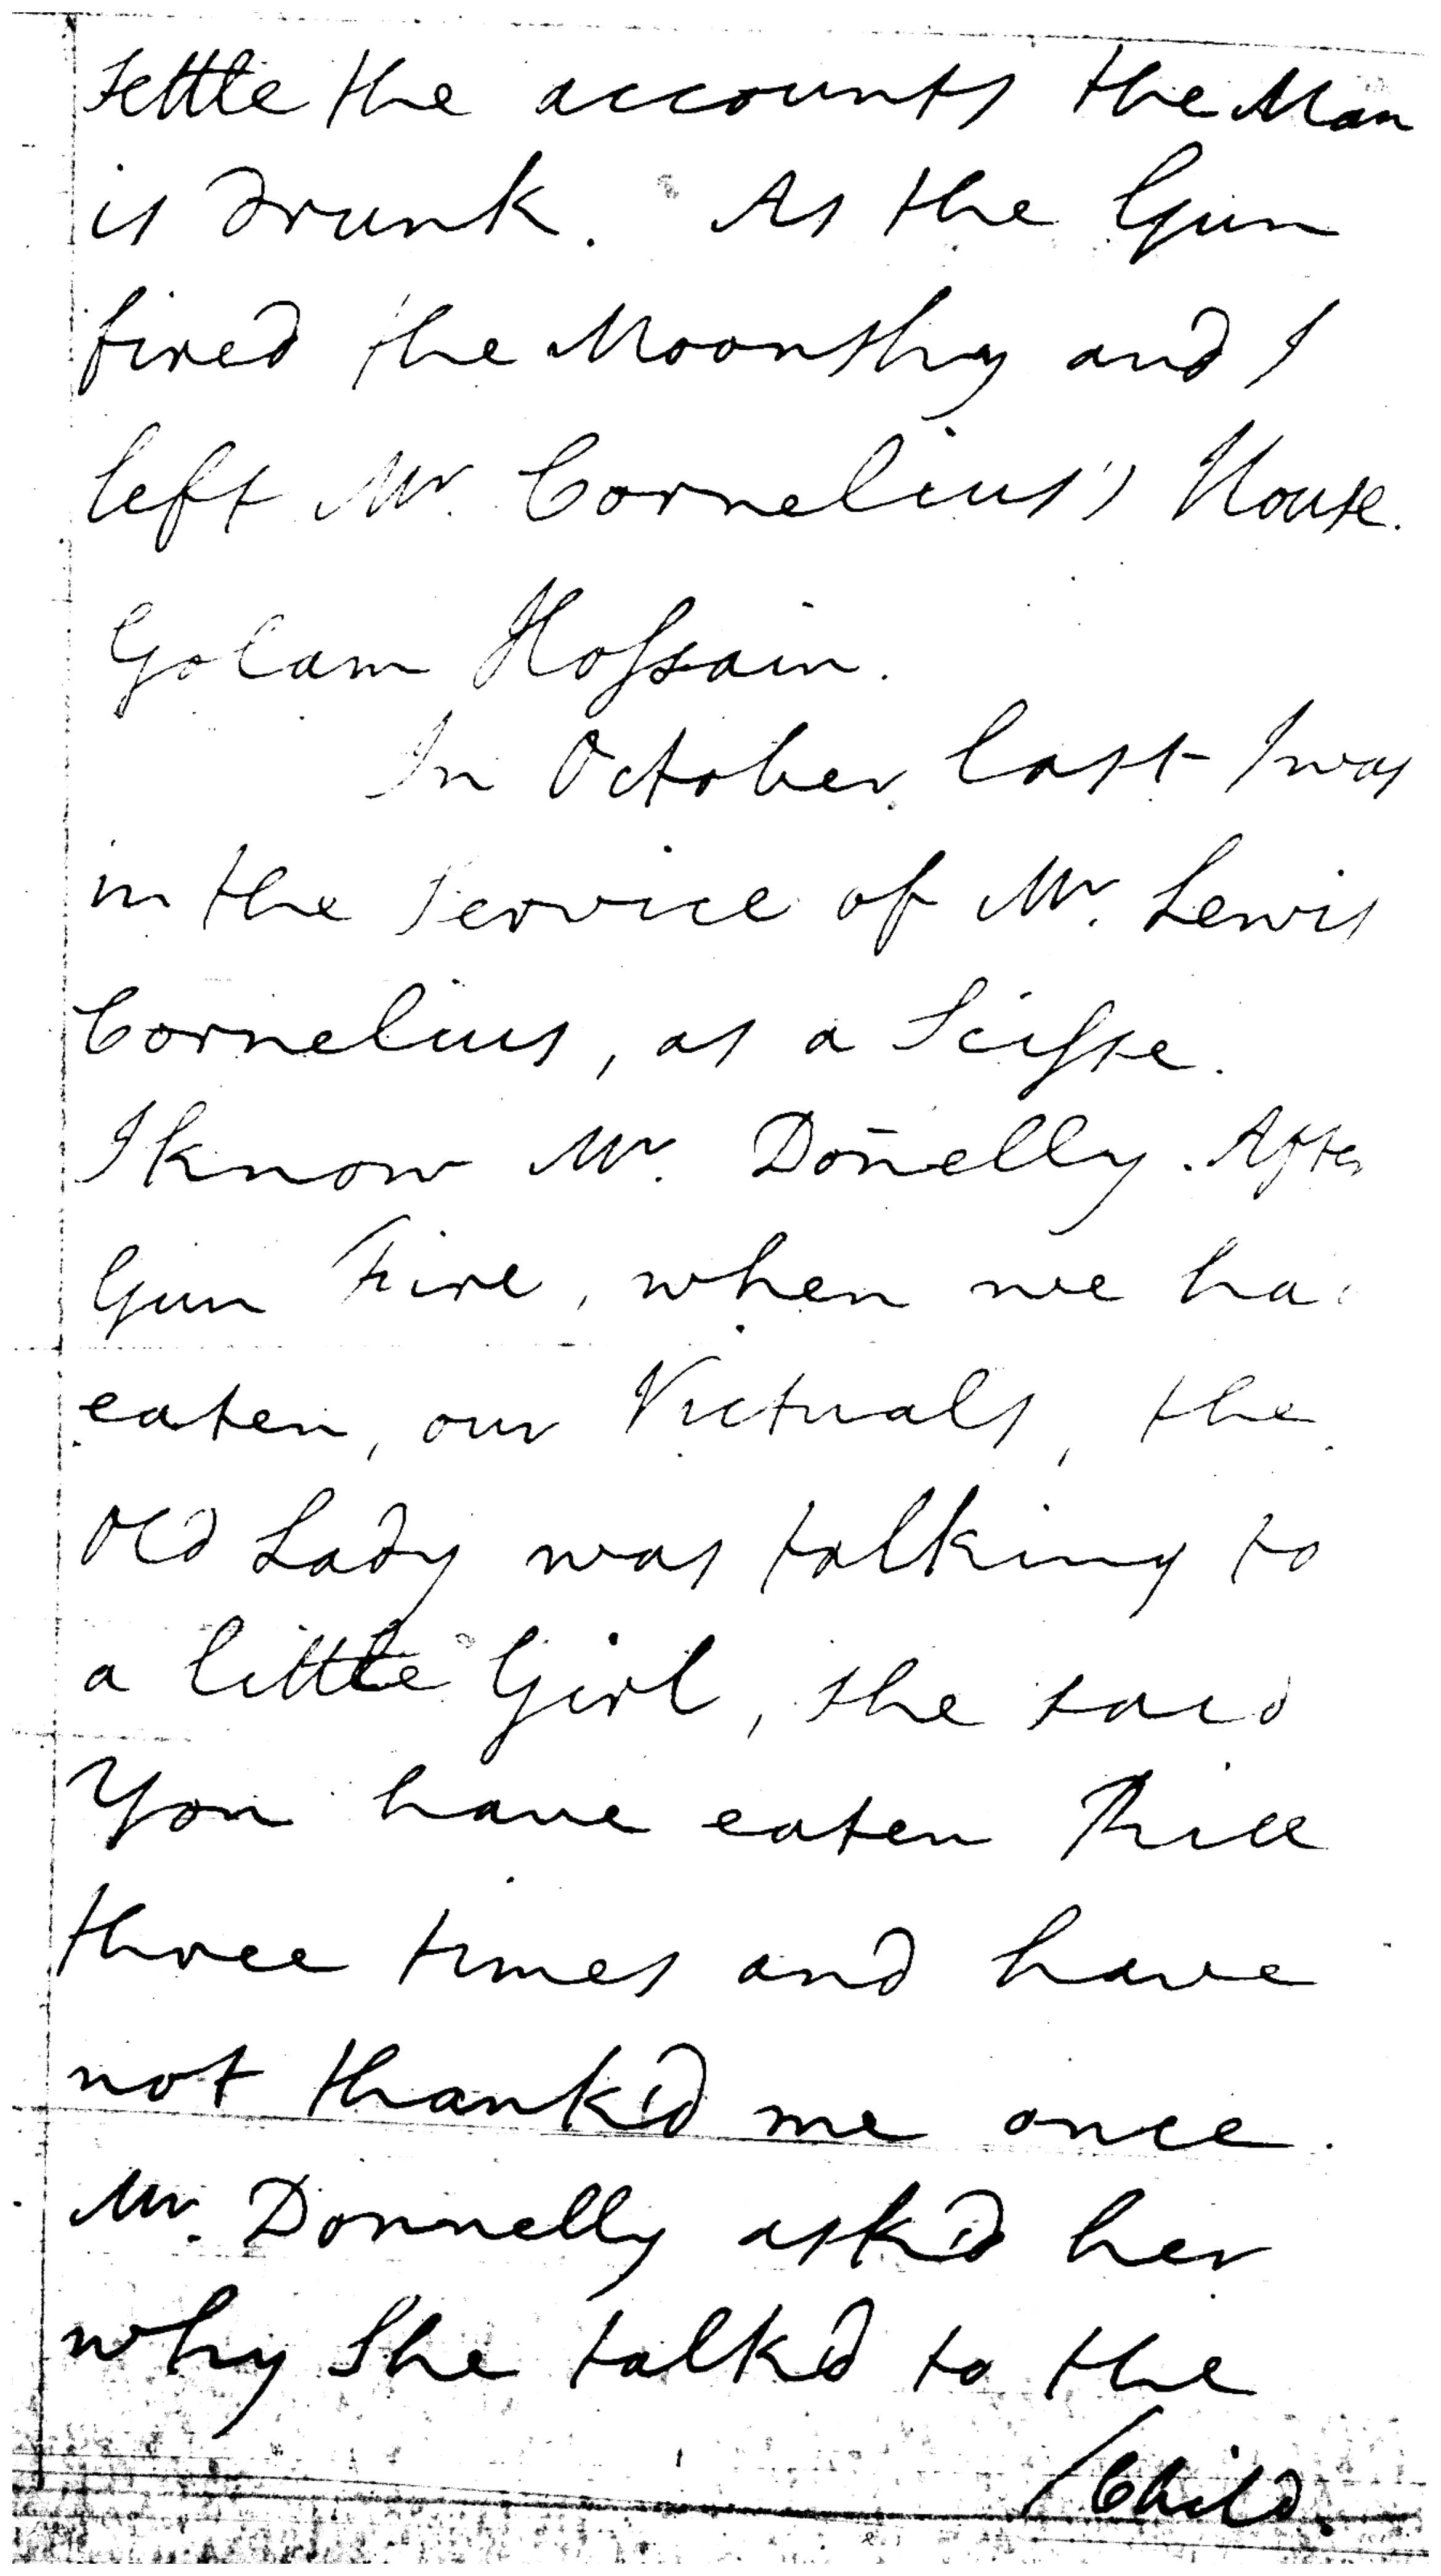 settle the accounts the Man
is drunk. As the Gun
fired the Moonshy and I
left Mr. Cornelius's House.
Golam Hossain.
In October last I was
in the Service of Mr. Lewis
Cornelius, as a Scisse.
I know Mr. Doñelly. After
Gun Fire, when we ha
eaten, our Victuals, the
Old Lady was talking to
a little Girl, she said
You have eaten Rice
three times and have
not thank'd me once.
Mr. Donnelly ask'd her
why She talk'd to the
/Child.